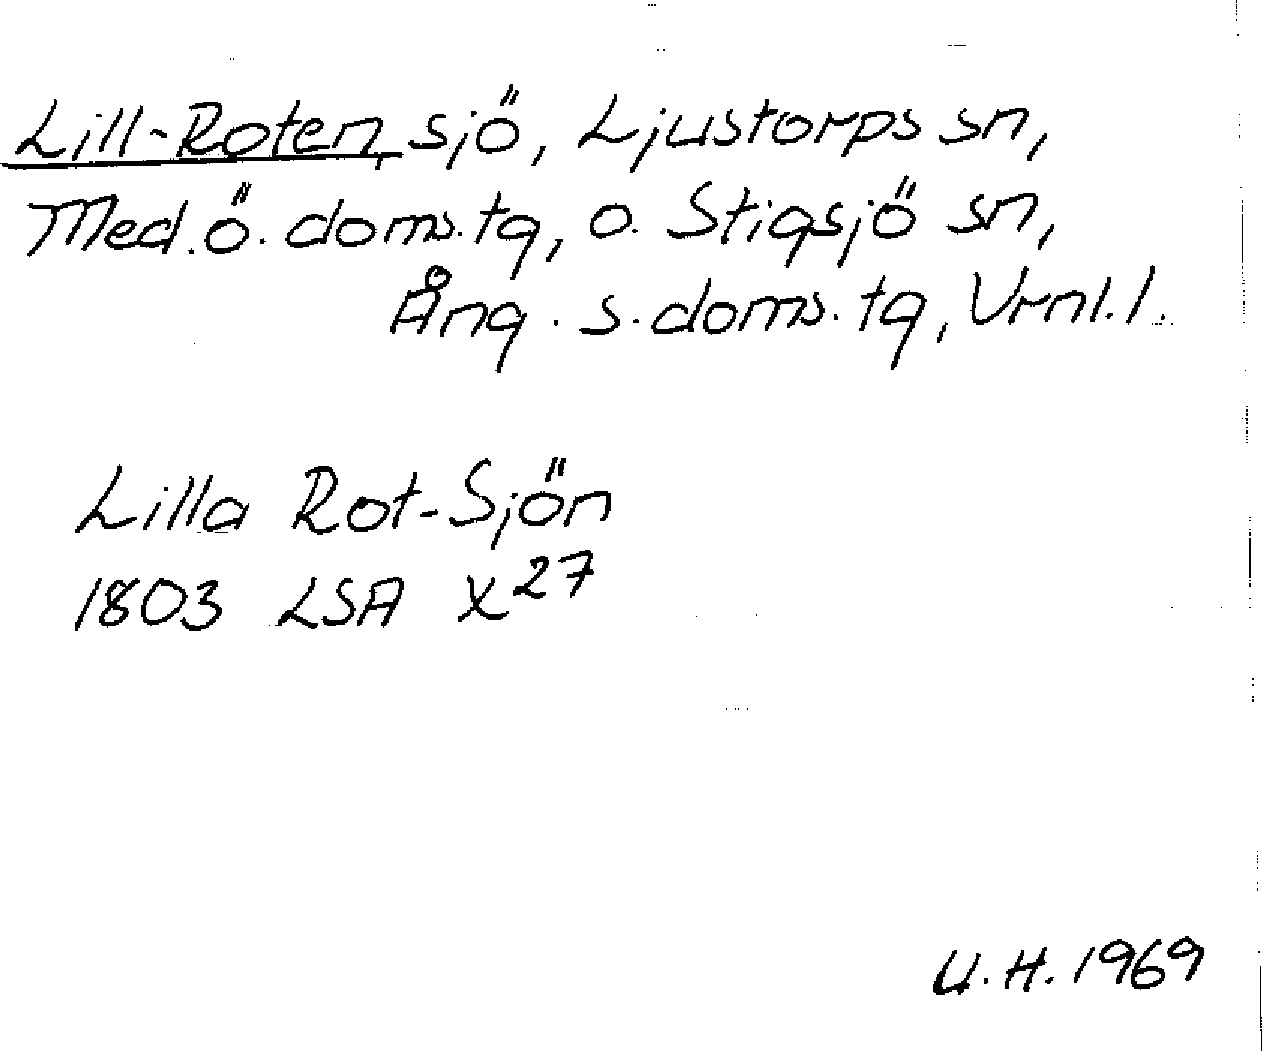 Lill-Roten, sjö, Ljustorps sn,
Med. ö. doms. tg, o. Stigsjö sn,
Ång. s. doms. tg, Vrnl. l.
Lilla Rot-Sjön
1803 LSA X27
U. H. 1969